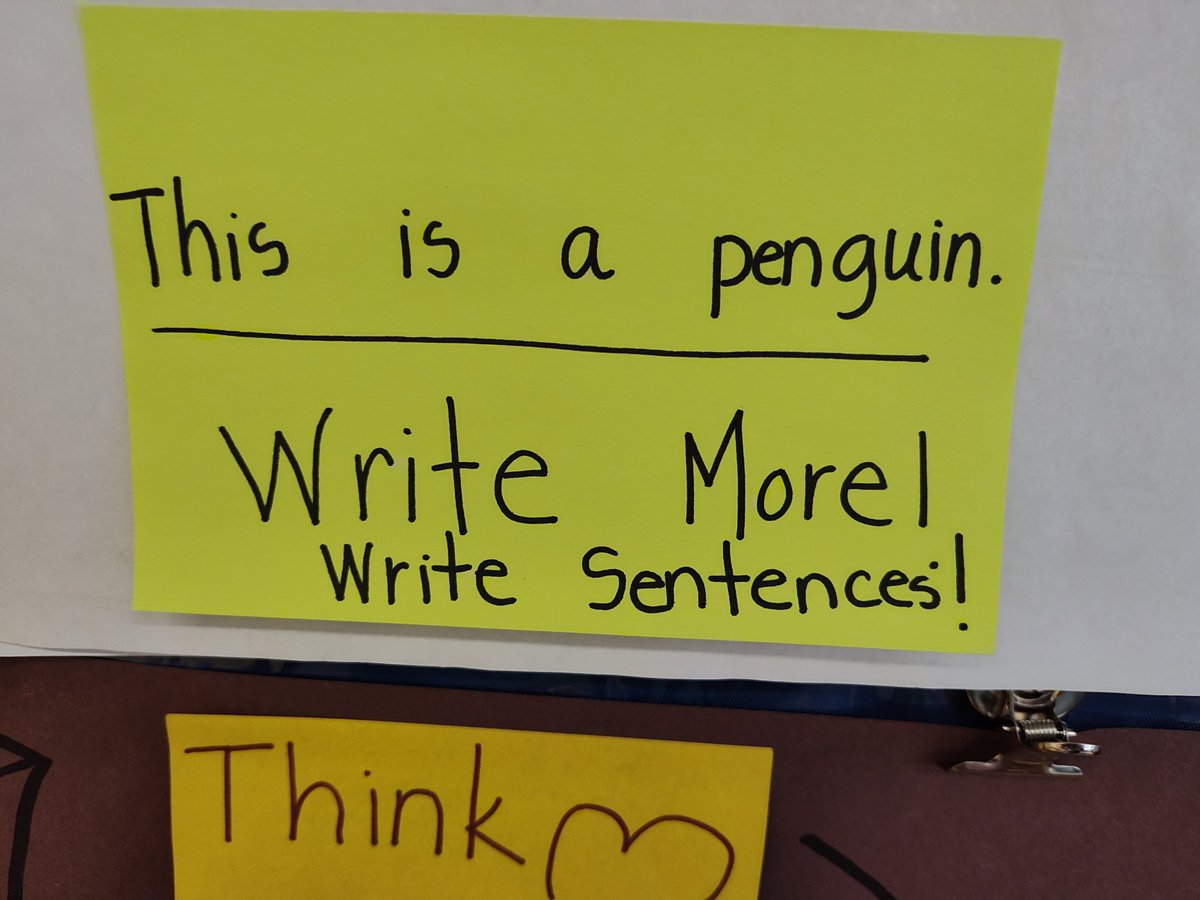 This is a penguin.
Write More!
Write Sentences!
Think